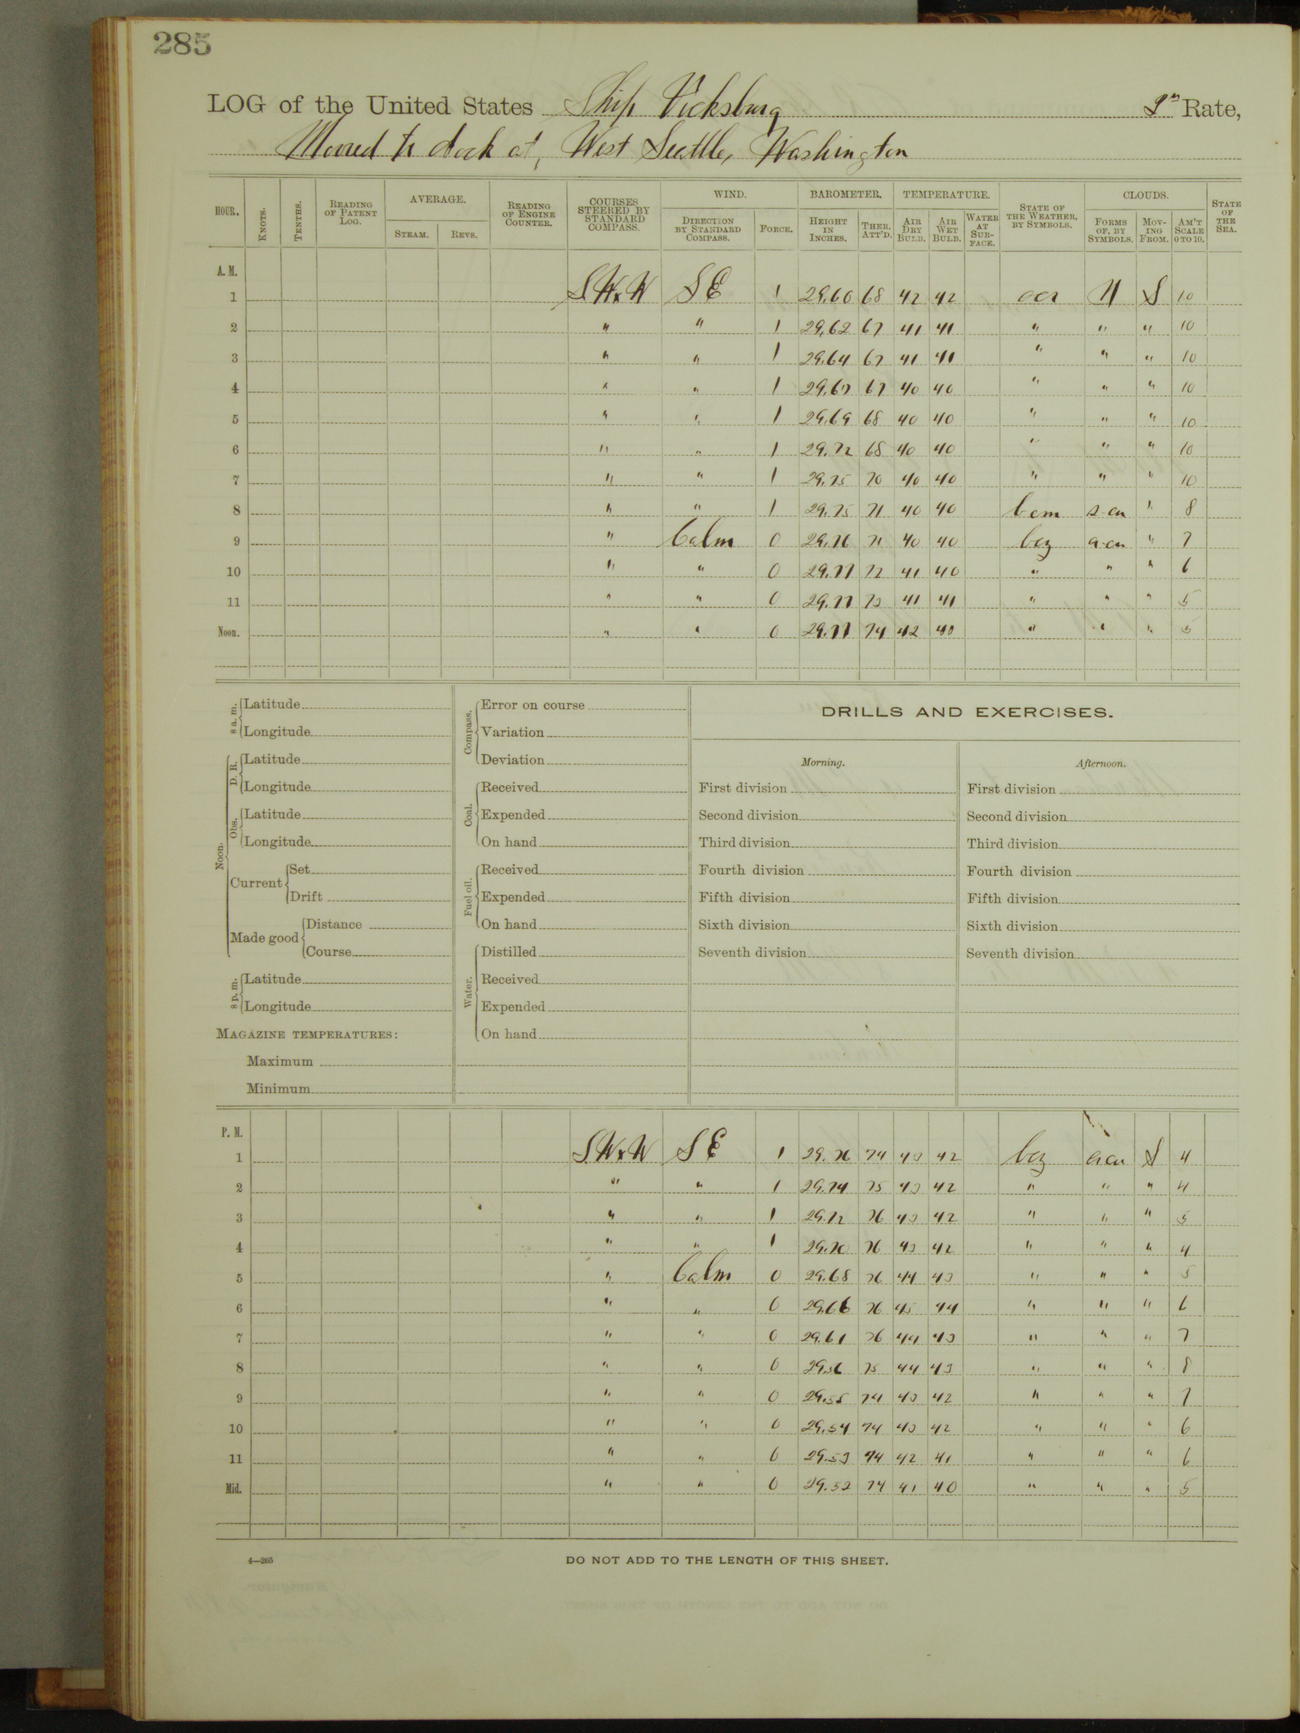 285
LOG of the United States Ship Vicksburg 2nd Rate,
Moored to dock at, West Seattle, Washington
HOUR. KNOTS. TENTHS. READING OF PATENT LOG. AVERAGE. STEAM. REVS. READING OF ENGINE COUNTER. COURSES STEERED BY STANDARD COMPASS. WIND. DIRECTION BY STANDARD COMPASS. FORCE. BAROMETER. HEIGHT IN INCHES. THER. ATT'D. TEMPERATURE. AIR DRY BULB. AIR WET BULB. WATER AT SURFACE. STATE OF THE WEATHER, BY SYMBOLS. CLOUDS. FORMS OF, BY SYMBOLS. MOVING FROM. AM'T SCALE 0 TO 10. STATE OF THE SEA.
A. M.
1 S.WxW SE 1 29.60 68 42 42 ocr N S 10
2 " " 1 29.62 67 41 41 " " " 10
3 " " 1 29.64 67 41 41 " " " 10
4 " " 1 29.67 67 40 40 " " " 10
5 " " 1 29.69 68 40 40 " " " 10
6 " " 1 29.72 68 40 40 " " " 10
7 " " 1 29.75 70 40 40 " " " 10
8 " " 1 29.75 71 40 40 bcm s-cu " 8
9 " Calm 0 29.76 71 40 40 bcz a-cu " 7
10 " " 0 29.77 72 41 40 " " " 6
11 " " 0 29.77 73 41 41 " " " 5
Noon. " " 0 29.77 74 42 40 " " " 5
8 a. m. Latitude
Longitude
Noon. D. R. Latitude
Longitude
Obs. Latitude
Longitude
Current Set
Drift
Made good Distance
Course
8 p. m. Latitude
Longitude
MAGAZINE TEMPERATURES:
Maximum
Minimum
Compass. Error on course
Variation
Deviation
Coal. Received
Expended
On hand
Fuel oil. Received
Expended
On hand
Water. Distilled
Received
Expended
On hand
DRILLS AND EXERCISES.
Morning. Afternoon.
First division First division
Second division Second division
Third division Third division
Fourth division Fourth division
Fifth division Fifth division
Sixth division Sixth division
Seventh division Seventh division
P. M.
1 S.WxW SE 1 29.76 74 43 42 bcz a-cu S 4
2 " " 1 29.74 75 43 42 " " " 4
3 " " 1 29.72 76 43 42 " " " 5
4 " " 1 29.70 76 43 42 " " " 4
5 " Calm 0 29.68 76 44 43 " " " 5
6 " " 0 29.66 76 45 44 " " " 6
7 " " 0 29.61 76 44 43 " " " 7
8 " " 0 29.56 75 44 43 " " " 8
9 " " 0 29.55 74 43 42 " " " 7
10 " " 0 29.54 74 43 42 " " " 6
11 " " 0 29.53 74 42 41 " " " 6
Mid. " " 0 29.52 74 41 40 " " " 5
4—265 DO NOT ADD TO THE LENGTH OF THIS SHEET.